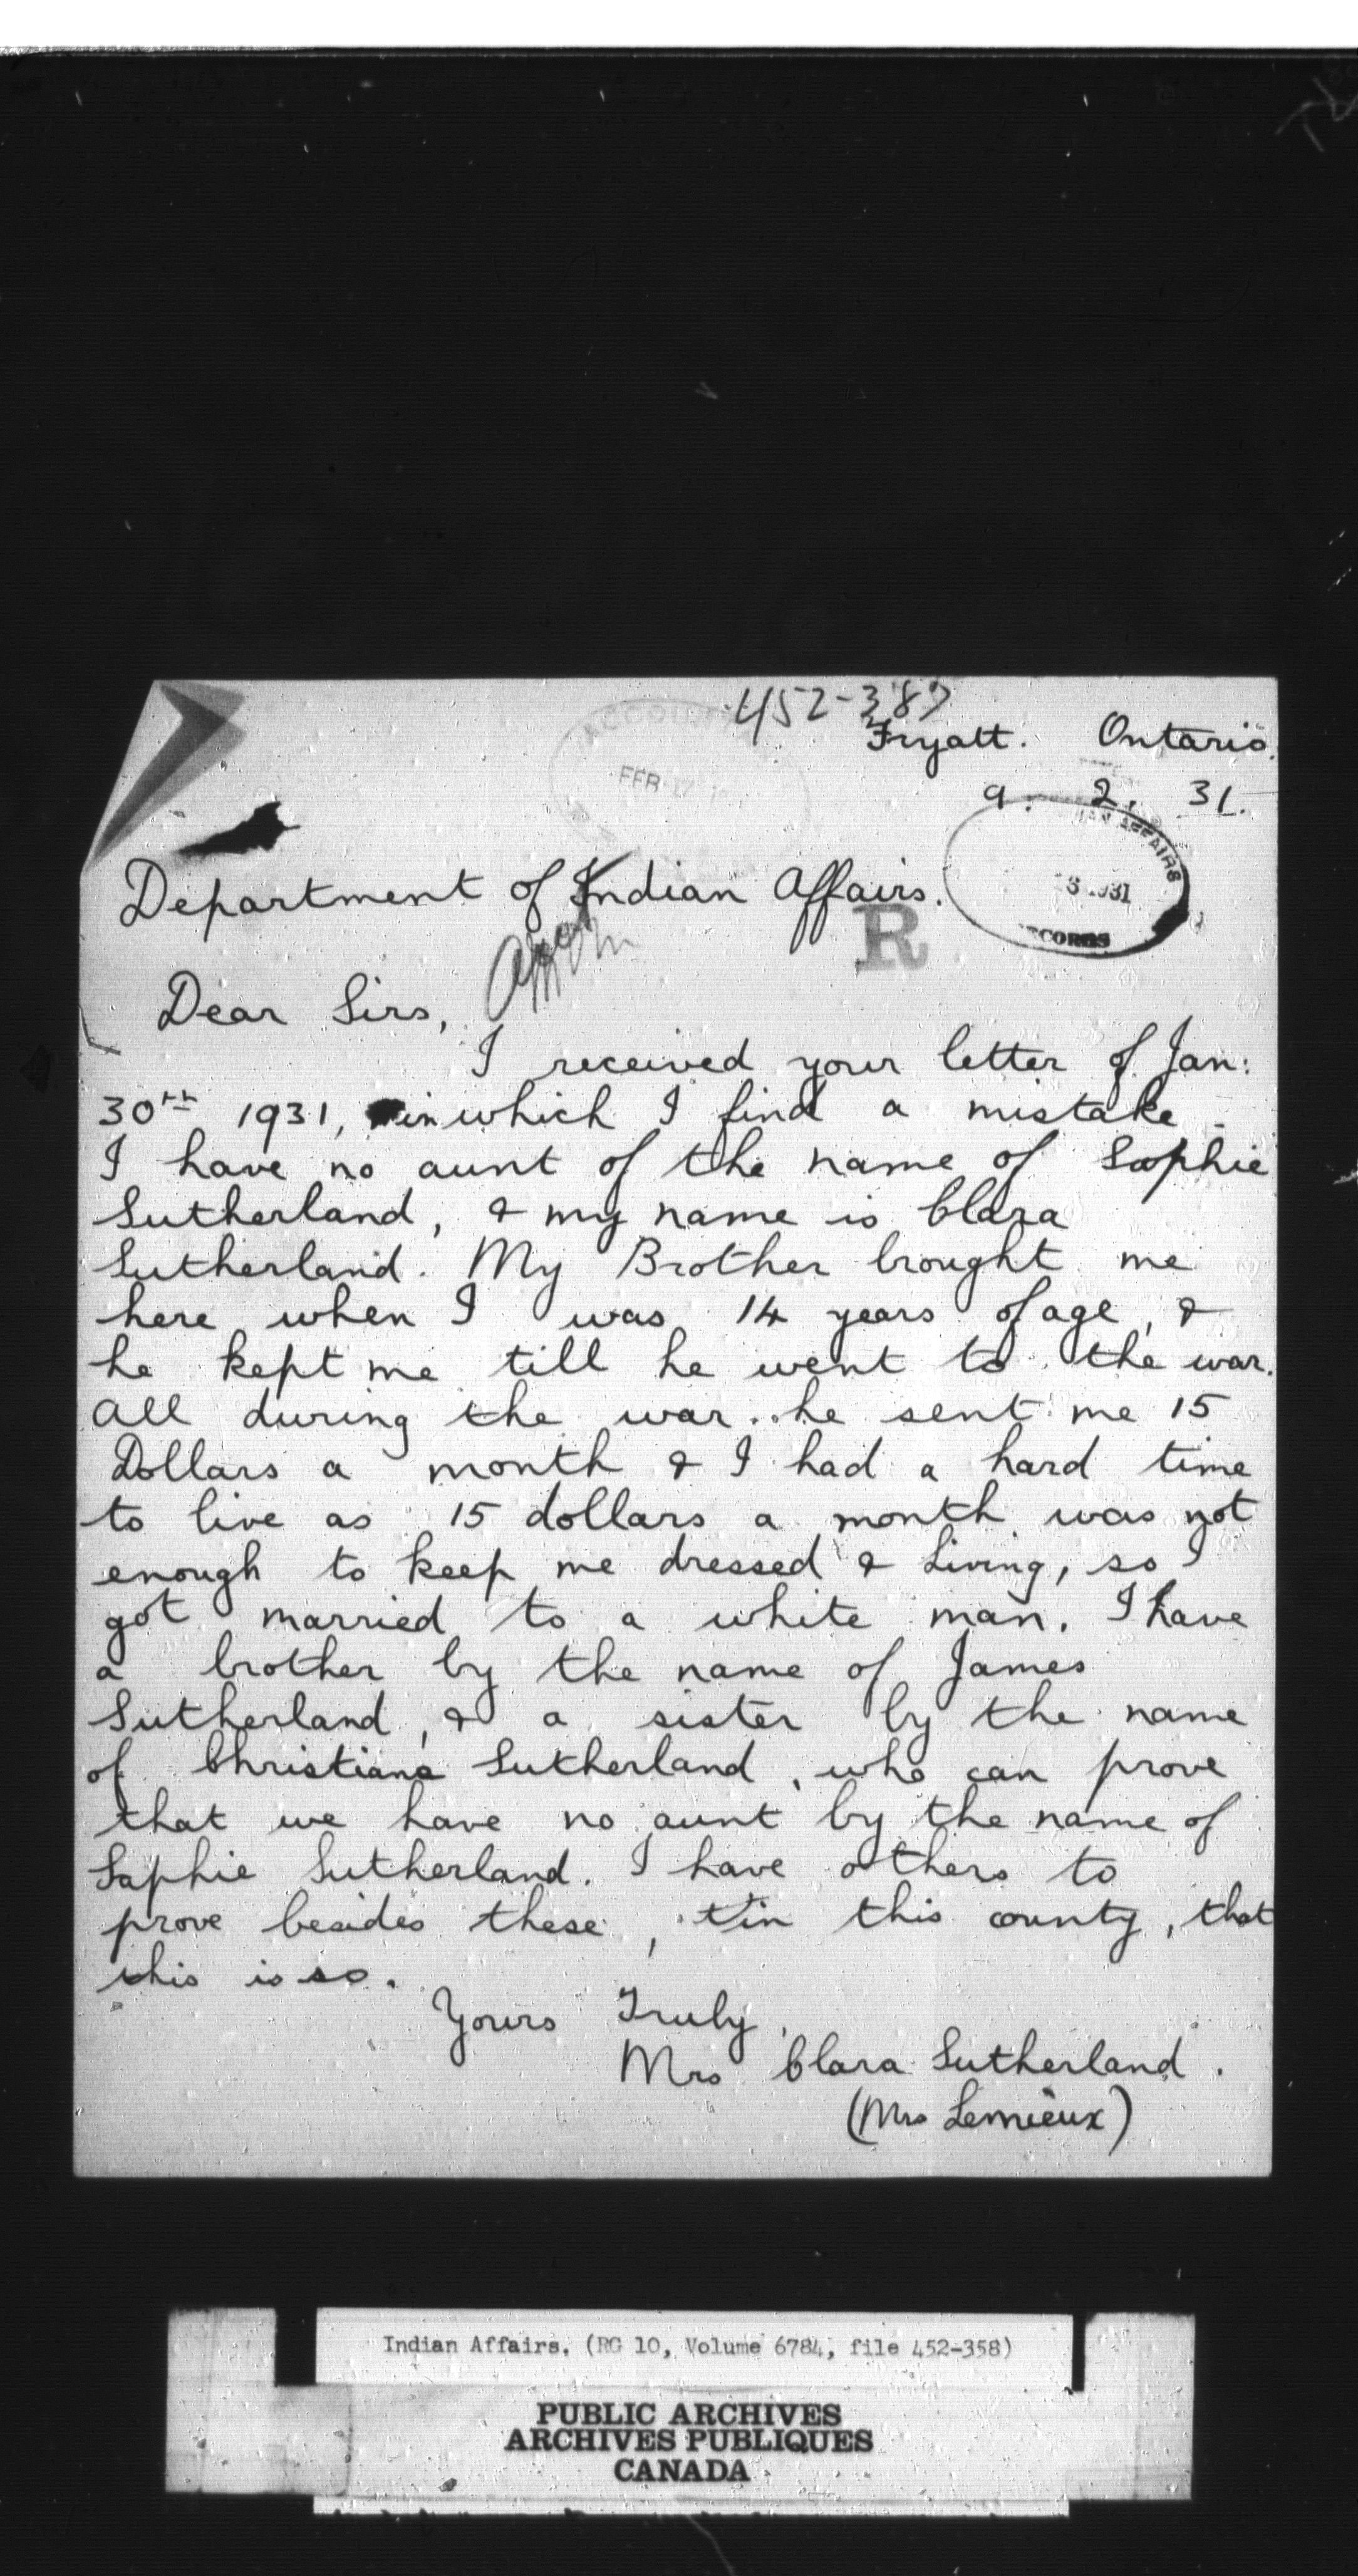 452-387
Fryatt. Ontario.
9. 2. 31.
FEB 17
IAN AFFAIRS
1931
RECORDS
Department of Indian Affairs.
R
Dear Sirs,
I received your letter of Jan:
30th 1931, in which I find a mistake.
I have no aunt of the name of Sophie
Sutherland, & my name is Clara
Sutherland. My Brother brought me
here when I was 14 years of age, &
he kept me till he went to the war.
All during the war he sent me 15
Dollars a month & I had a hard time
to live as 15 dollars a month was not
enough to keep me dressed & Living, so I
got married to a white man. I have
a brother by the name of James
Sutherland, & a sister by the name
of Christiana Sutherland, who can prove
that we have no aunt by the name of
Sophie Sutherland. I have others to
prove besides these, in this county, that
this is so.
Yours Truly,
Mrs Clara Sutherland.
(Mrs Lemieux)
Indian Affairs. (RG 10, Volume 6784, file 452-358)
PUBLIC ARCHIVES
ARCHIVES PUBLIQUES
CANADA